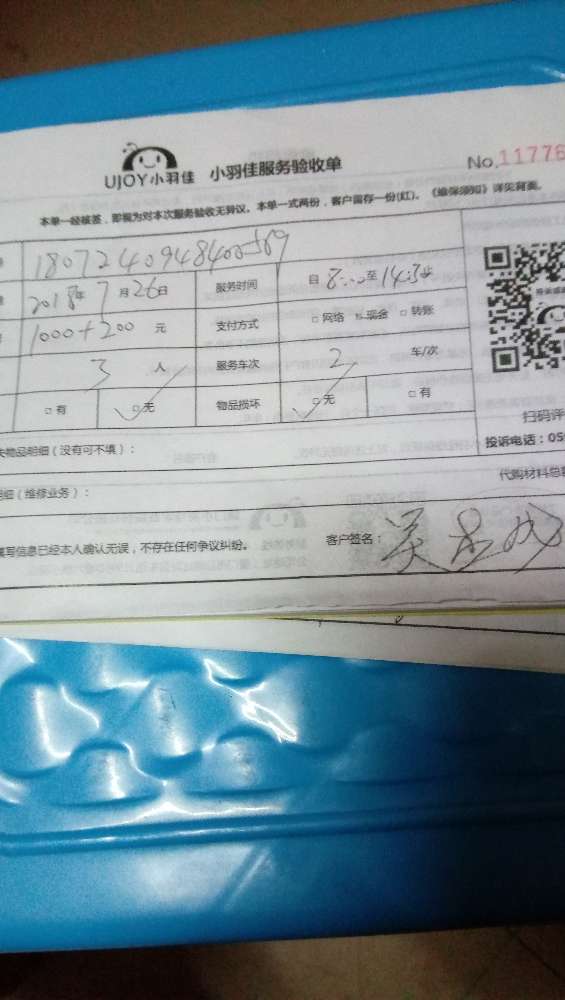 UJOY小羽佳 小羽佳服务验收单 No.11776
本单一经核签，即视为对本次服务验收无异议。本单一式两份，客户留存一份(红)。《维保须知》详见背面。
1807240948400589
2018年7月26日 服务时间 自8:00至14:30
1000+200元 支付方式 □网络 现金 □转账
3人 服务车次 2车/次
□有 □无 物品损坏 □无 □有
扫码评
失物品明细（没有可不填）： 投诉电话：059
明细（维修业务）： 代购材料总额
填写信息已经本人确认无误，不存在任何争议纠纷。 客户签名：